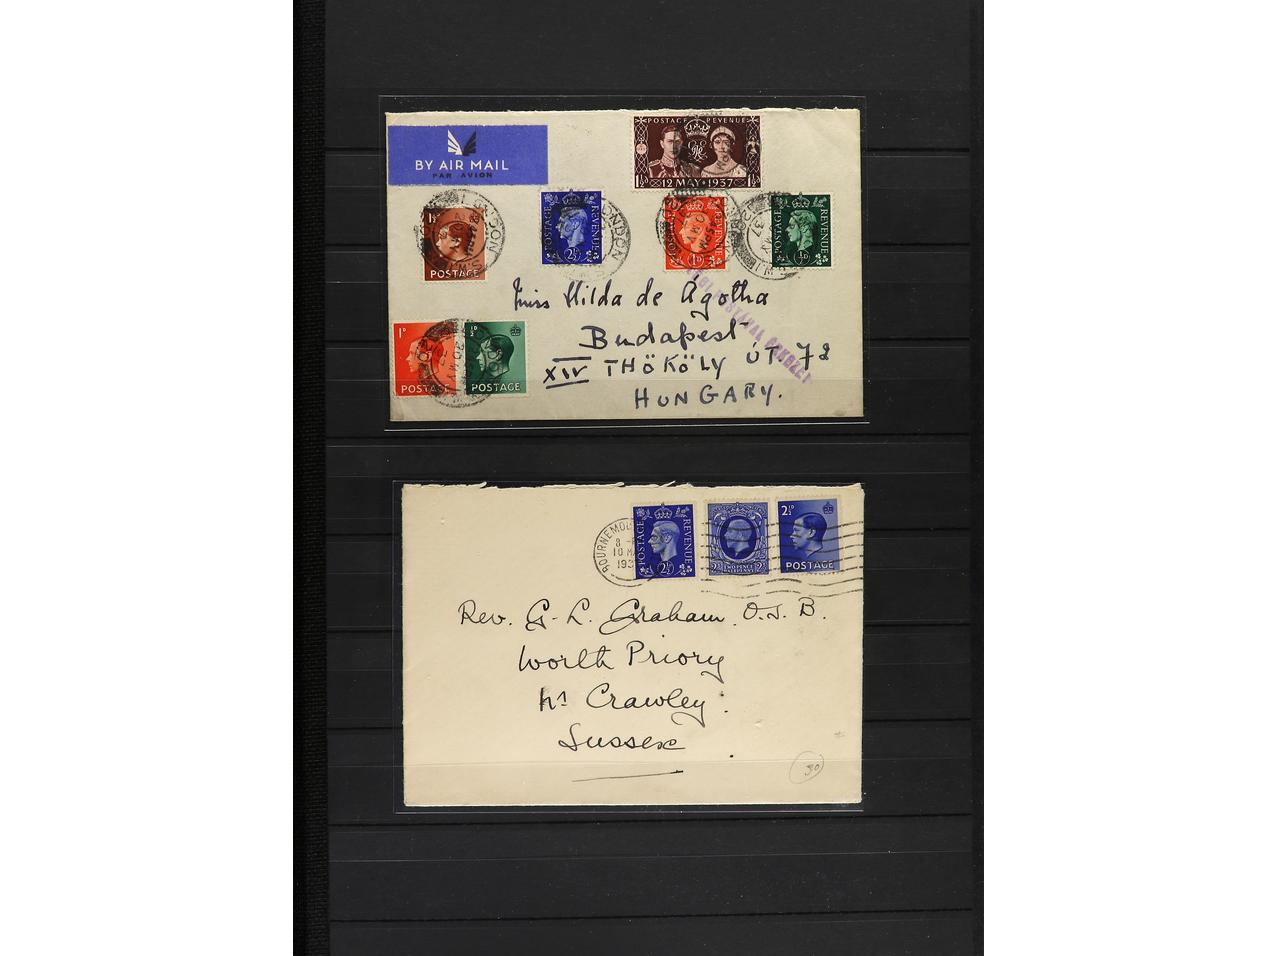 BY AIR MAIL
PAR AVION
POSTAGE REVENUE
1½D 12 MAY · 1937 1½D
LONDON
POSTAGE
POSTAGE REVENUE
2½D
LONDON
REVENUE
1D
POSTAGE REVENUE
½D
Miss Hilda de Agotha
Budapest
XIV THÖKÖLY ÚT. 78
HUNGARY.
1D
POSTAGE
½D
POSTAGE
BOURNEMOU
8
10 MA
193
POSTAGE REVENUE
2½D
TWO PENCE
HALFPENNY
2½D
POSTAGE
Rev. G. L. Graham O.S.B.
Worth Priory
Nr Crawley.
Sussex
30